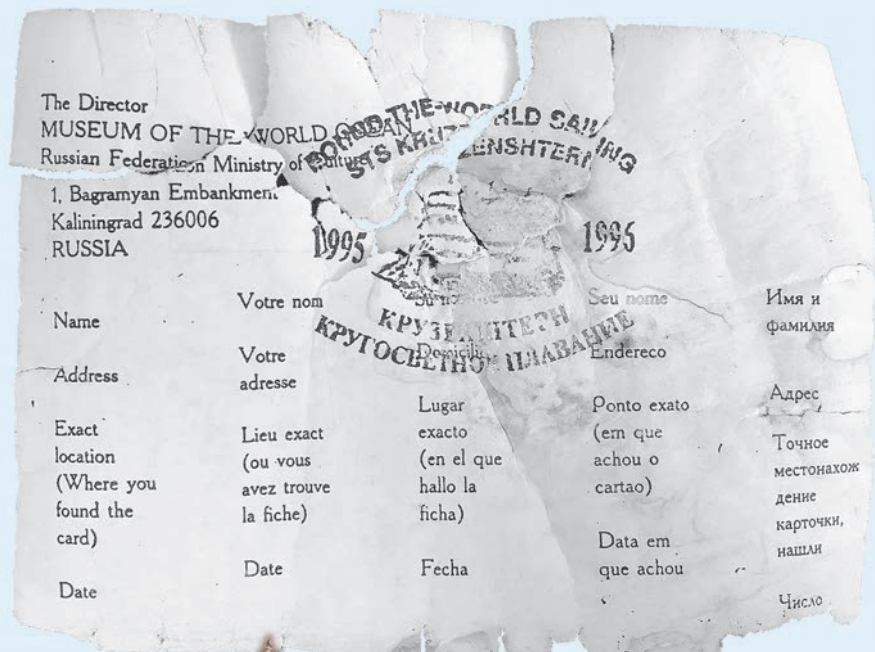 The Director
MUSEUM OF THE WORLD OCEAN
Russian Federation Ministry of Culture
1, Bagramyan Embankment
Kaliningrad 236006
RUSSIA
THE-WORLD SAILING
STS KRUZENSHTERN
1995
1996
КРУЗЕНШТЕРН
КРУГОСВЕТНОЕ ПЛАВАНИЕ
Name
Address
Exact
location
(Where you
found the
card)
Date
Votre nom
Votre
adresse
Lieu exact
(ou vous
avez trouve
la fiche)
Date
Domicilio
Lugar
exacto
(en el que
hallo la
ficha)
Fecha
Seu nome
Endereco
Ponto exato
(em que
achou o
cartao)
Data em
que achou
Имя и
фамилия
Адрес
Точное
местонахож
дение
карточки,
нашли
Число